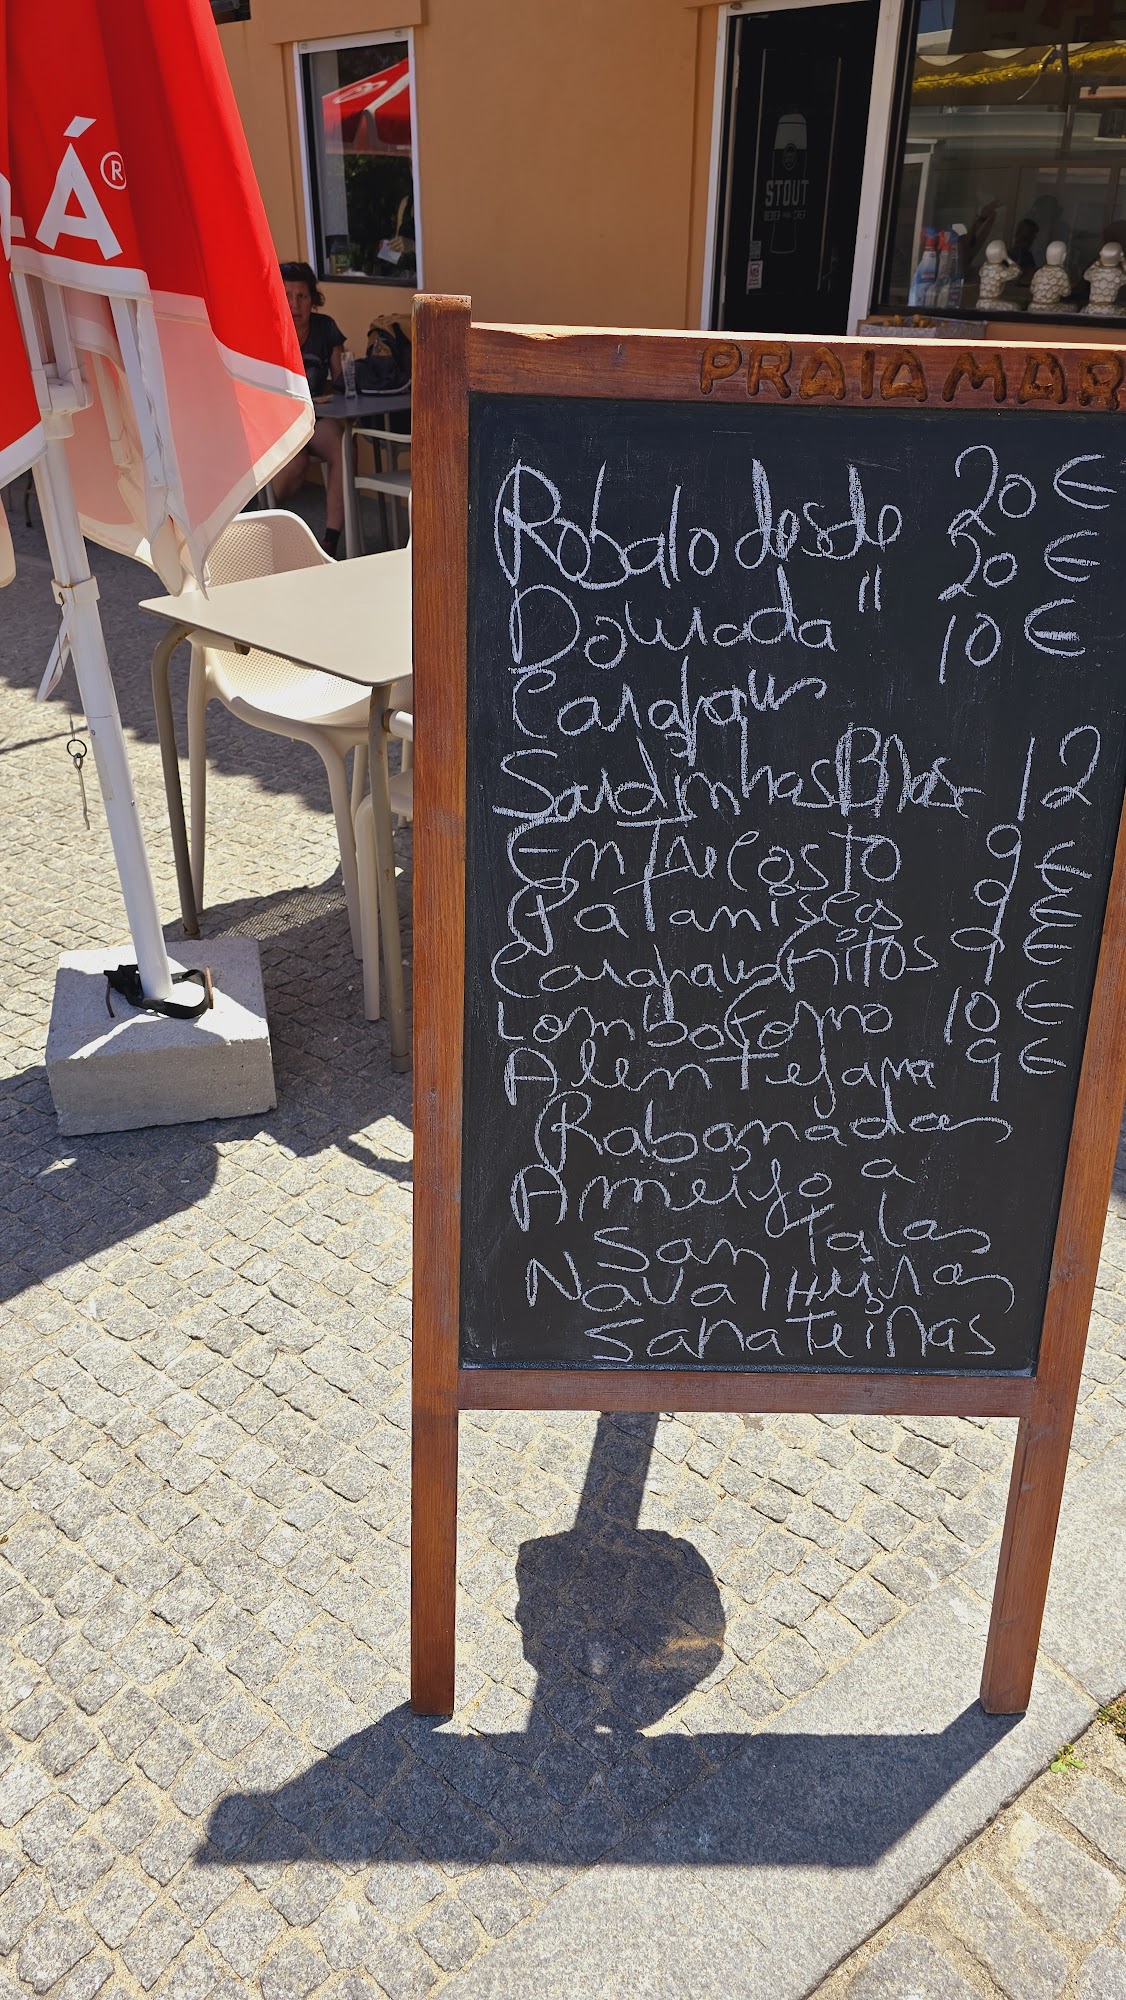 LÁ®
STOUT
BEBER COM CHEF
PRAIA MAR
Robalo desde 20 €
Dourada " 20 €
Carapaus 10 €
Sardinhas Bras 12
Entrecosto 9 €
Pataniscas 9 €
Carapaus Fritos 9 €
Lombo Forno 10 €
Alentejana 9 €
Rabanadas
Ameijoa
San Talas
Navalheiras
Sapateiras